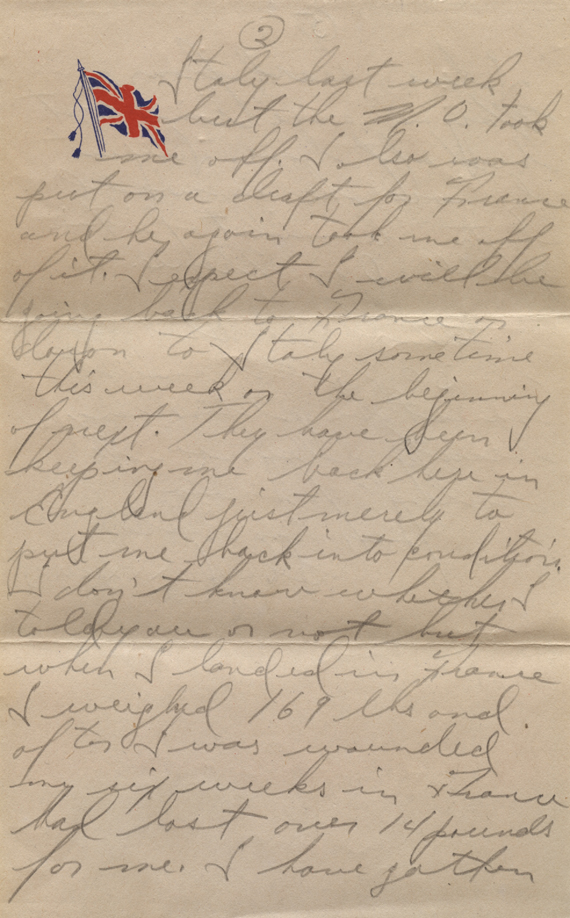 2
Italy last week
but the M.O. took
me off. I also was
put on a draft for France
and he again took me off
of it. I expect I will be
going back to France or
to Italy sometime
this week or the beginning
of next. They have been
keeping me back here in
England just merely to
put me back into condition.
I don't know whether I
told you or not but
when I landed in France
I weighed 169 lbs and
after I was wounded
my six weeks in France
had lost over 14 pounds
for me. I have gotten